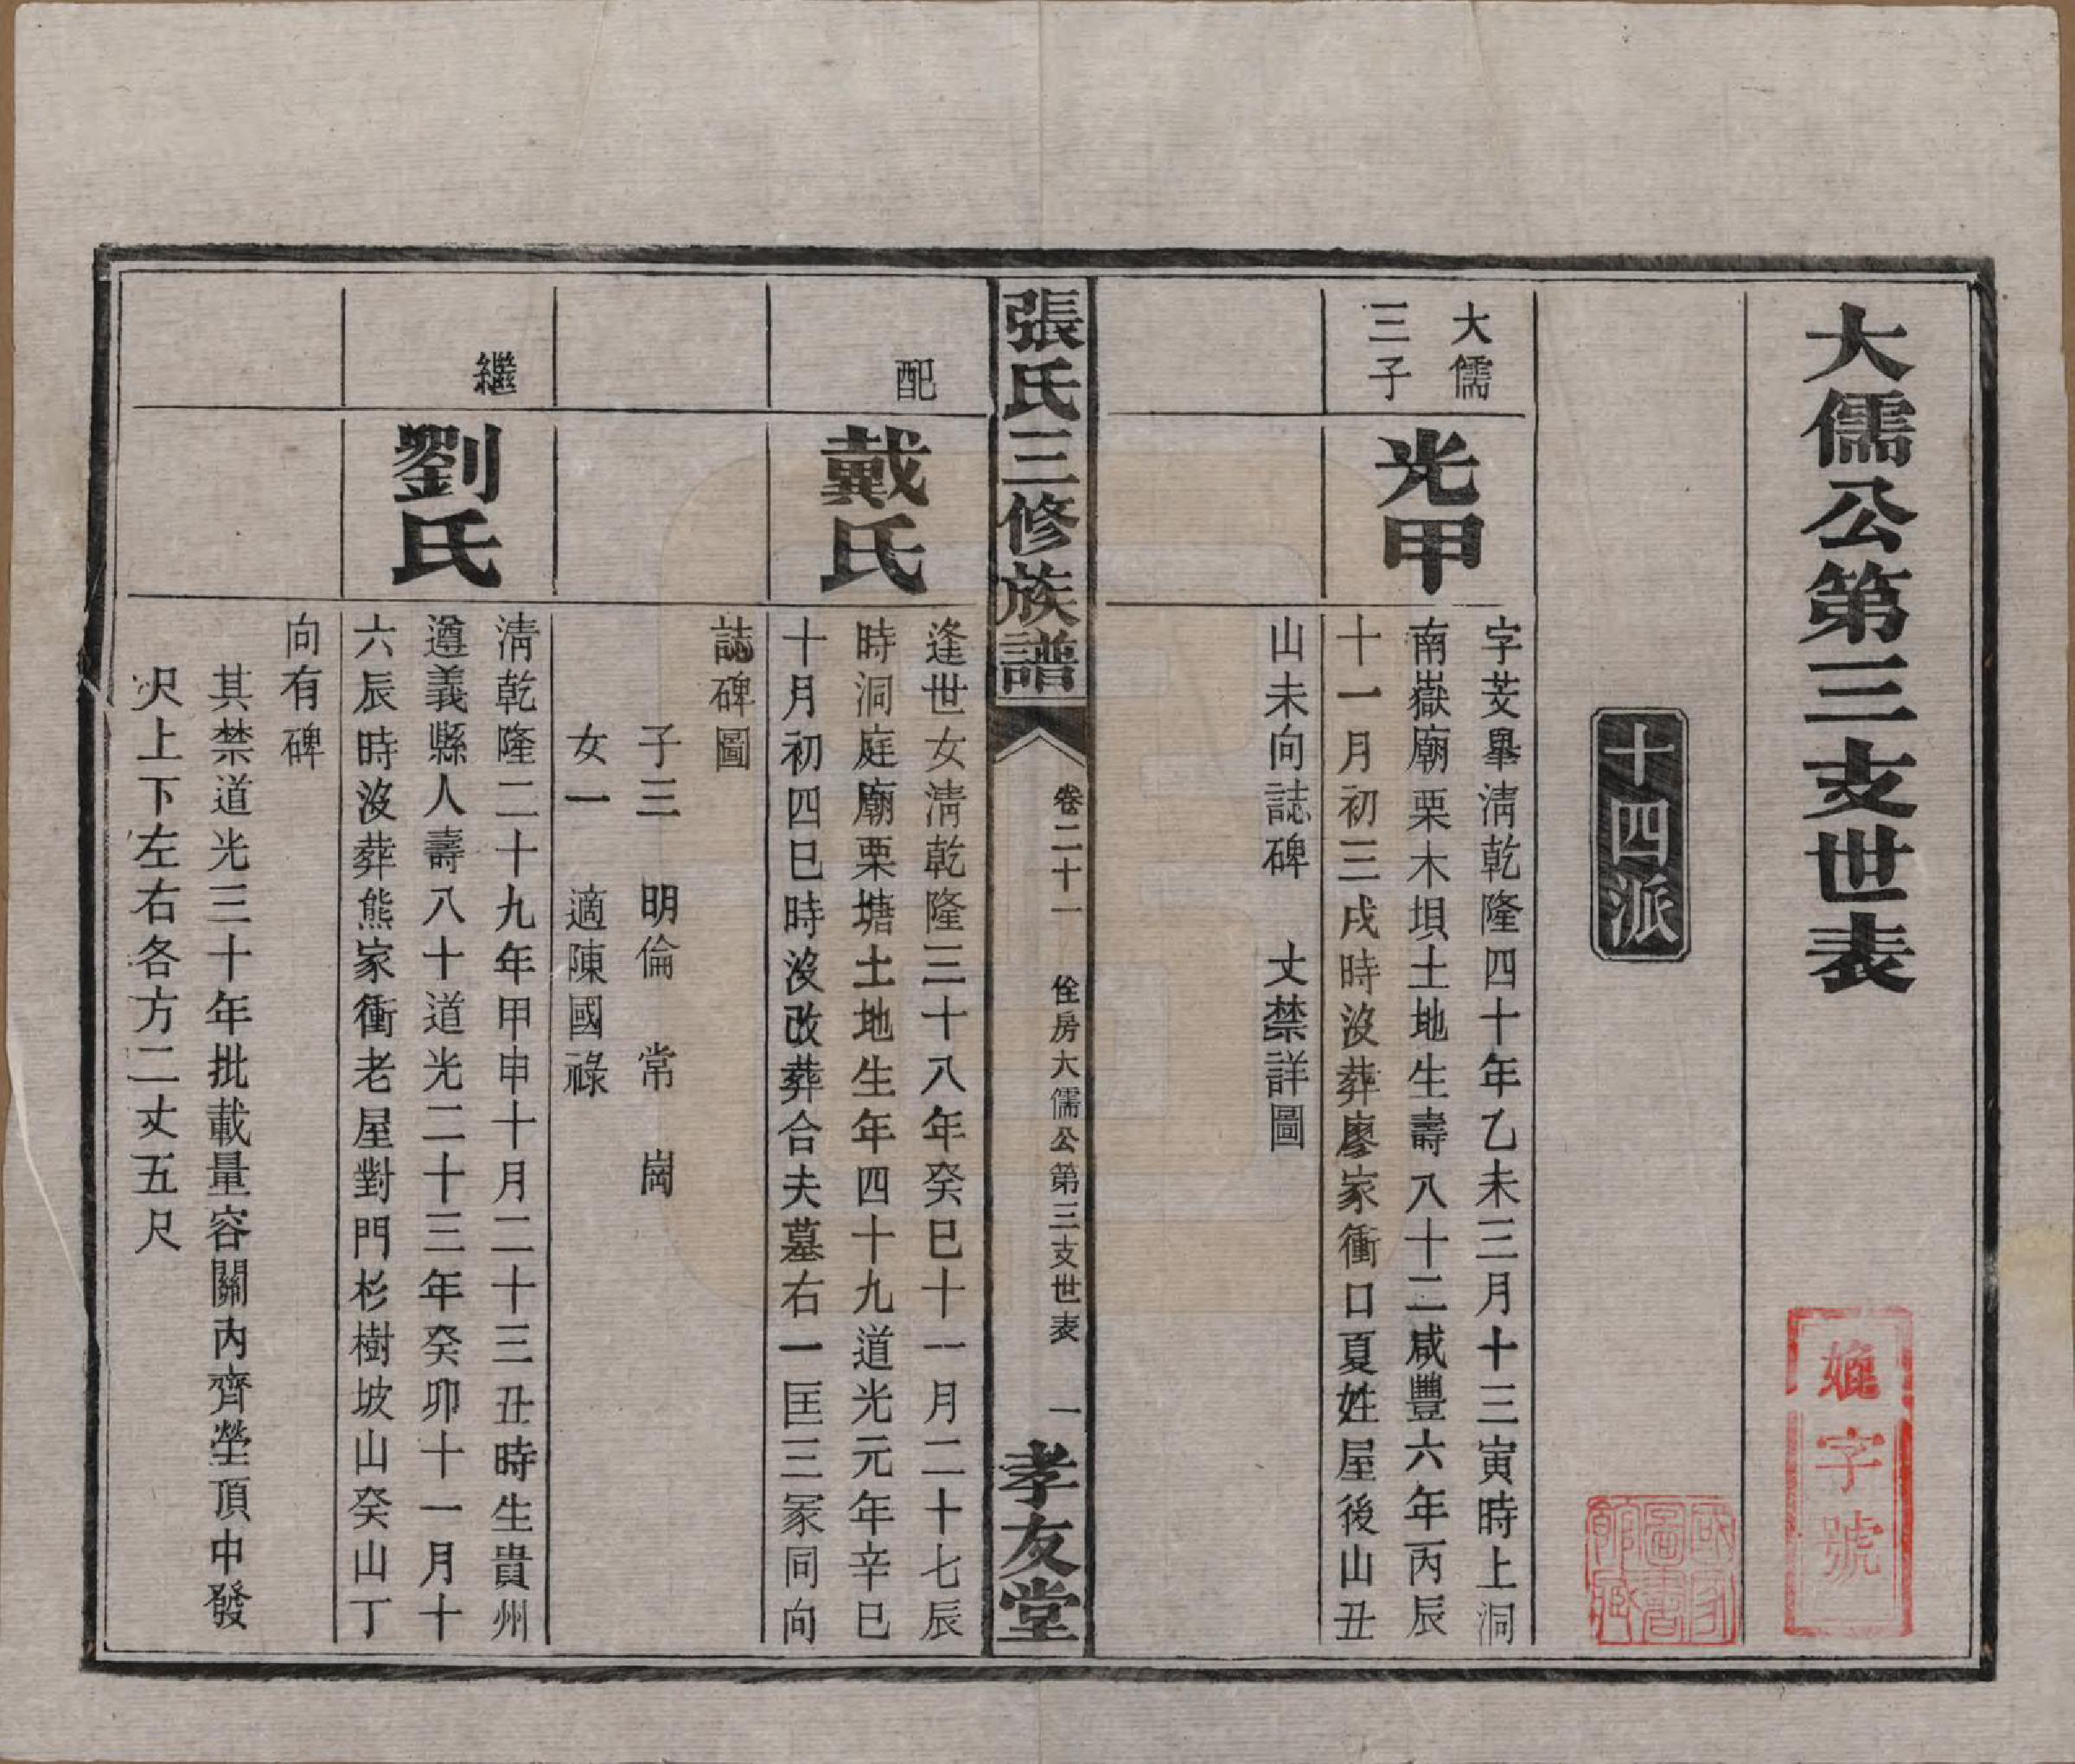 大儒公第三支世表
十四派
大儒
三子
光甲
字芰畢淸乾隆四十年乙未三月十三寅時上洞
南嶽廟栗木垻土地生壽八十二咸豐六年丙辰
十一月初三戌時沒葬廖家衝口夏姓屋後山丑
山未向誌碑 丈禁詳圖
張氏三修族譜
卷二十一 佺房大儒公第三支世表 一
孝友堂
配
戴氏
逢世女淸乾隆三十八年癸巳十一月二十七辰
時洞庭廟栗塘土地生年四十九道光元年辛巳
十月初四巳時沒改葬合夫墓右一匡三冢同向
誌碑圖
子三 明倫 常 崗
女一 適陳國祿
繼
劉氏
淸乾隆二十九年甲申十月二十三丑時生貴州
遵義縣人壽八十道光二十三年癸卯十一月十
六辰時沒葬熊家衝老屋對門杉樹坡山癸山丁
向有碑
其禁道光三十年批載量容關內齊塋頂中發
尺上下左右各方二丈五尺
字號
國家圖書館藏